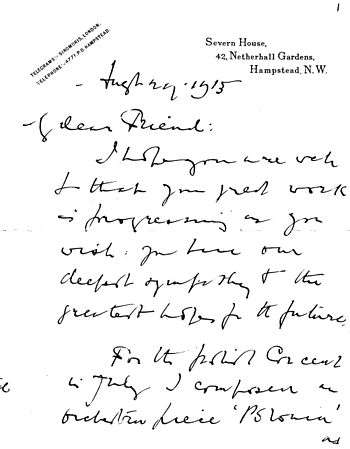 1
TELEGRAMS - SIROMORIS, LONDON.
TELEPHONE - 4771 P.O. HAMPSTEAD.
Severn House,
42, Netherhall Gardens,
Hampstead, N.W.
Augt 29. 1915
My dear Friend:
I hope you are well
& that your great work
is progressing as you
wish: you have our
deepest sympathy & the
greatest hopes for the future.
For the Polish Concert
in July I composed an
orchestral piece 'Polonia'
and